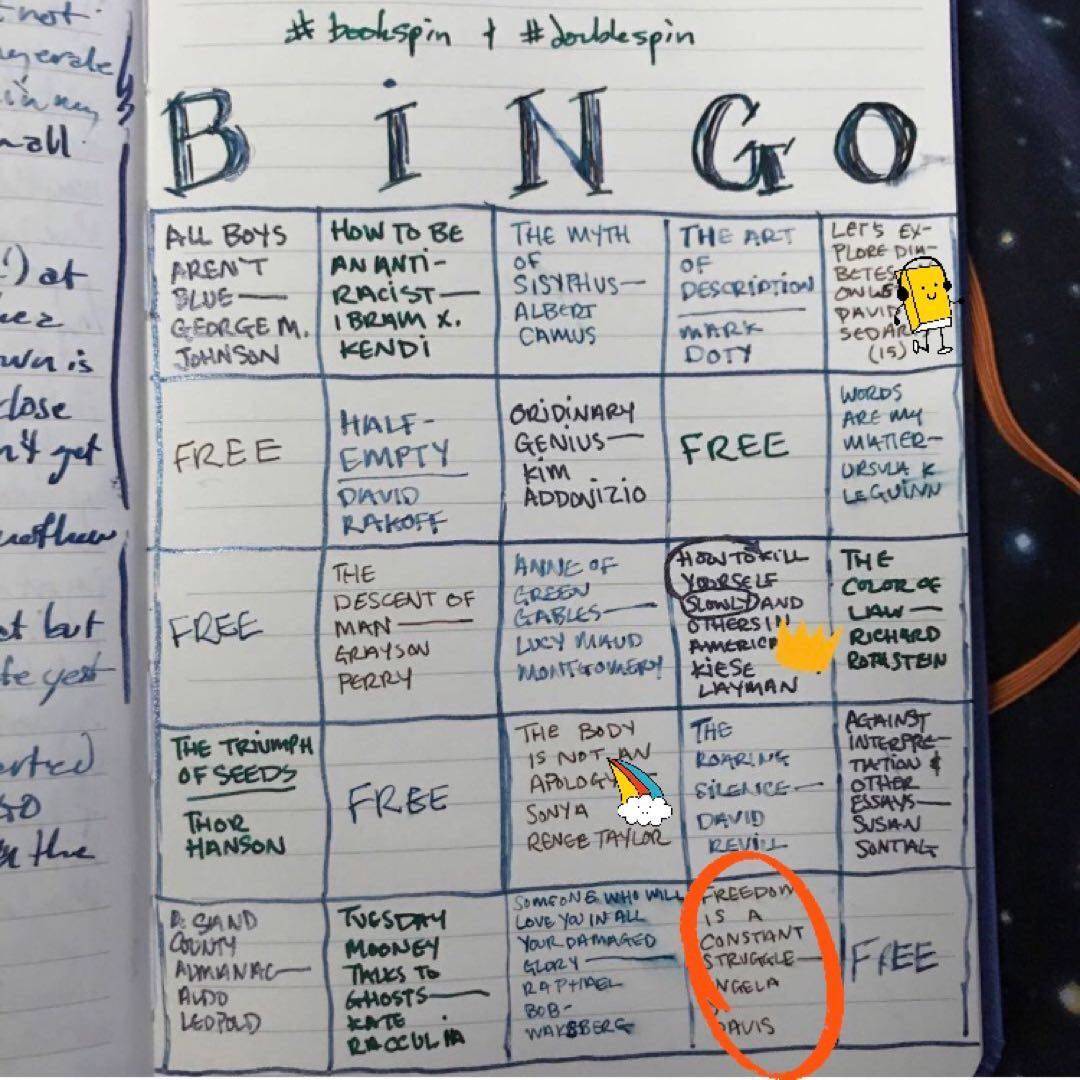 t not
nerate
in my
mall
!) at
own is
close
n't get
another
ot but
te yest
so
the
#bookspin + #doublespin
BiNGO
ALL BOYS
AREN'T
BLUE—
GEORGE M.
JOHNSON
HOW TO BE
AN ANTI-
RACIST—
IBRAM X.
KENDI
THE MYTH
OF
SISYPHUS—
ALBERT
CAMUS
THE ART
OF
DESCRIPTION
MARK
DOTY
LET'S EX-
PLORE DIA-
BETES
OWLS
DAVID
SEDAR
(15)
FREE
HALF-
EMPTY
DAVID
RAKOFF
ORIDINARY
GENIUS—
KIM
ADDONIZIO
FREE
WORDS
ARE MY
MATTER—
URSULA K
LEGUINN
FREE
THE
DESCENT OF
MAN—
GRAYSON
PERRY
ANNE OF
GREEN
GABLES—
LUCY MAUD
MONTGOMERY
HOW TO KILL
YOURSELF
SLOWLY AND
OTHERS IN
AMERICA
KIESE
LAYMAN
THE
COLOR OF
LAW—
RICHARD
ROTHSTEIN
THE TRIUMPH
OF SEEDS
THOR
HANSON
FREE
THE BODY
IS NOT AN
APOLOGY
SONYA
RENEE TAYLOR
THE
ROARING
SILENCE—
DAVID
REVILL
AGAINST
INTERPRE-
TATION &
OTHER
ESSAYS—
SUSAN
SONTAG
A SAND
COUNTY
ALMANAC—
ALDO
LEOPOLD
TUESDAY
MOONEY
TALKS TO
GHOSTS—
KATE
RACCULIA
SOMEONE WHO WILL
LOVE YOU IN ALL
YOUR DAMAGED
GLORY—
RAPHAEL
BOB-
WAKSBERG
FREEDOM
IS A
CONSTANT
STRUGGLE—
NGELA
DAVIS
FREE